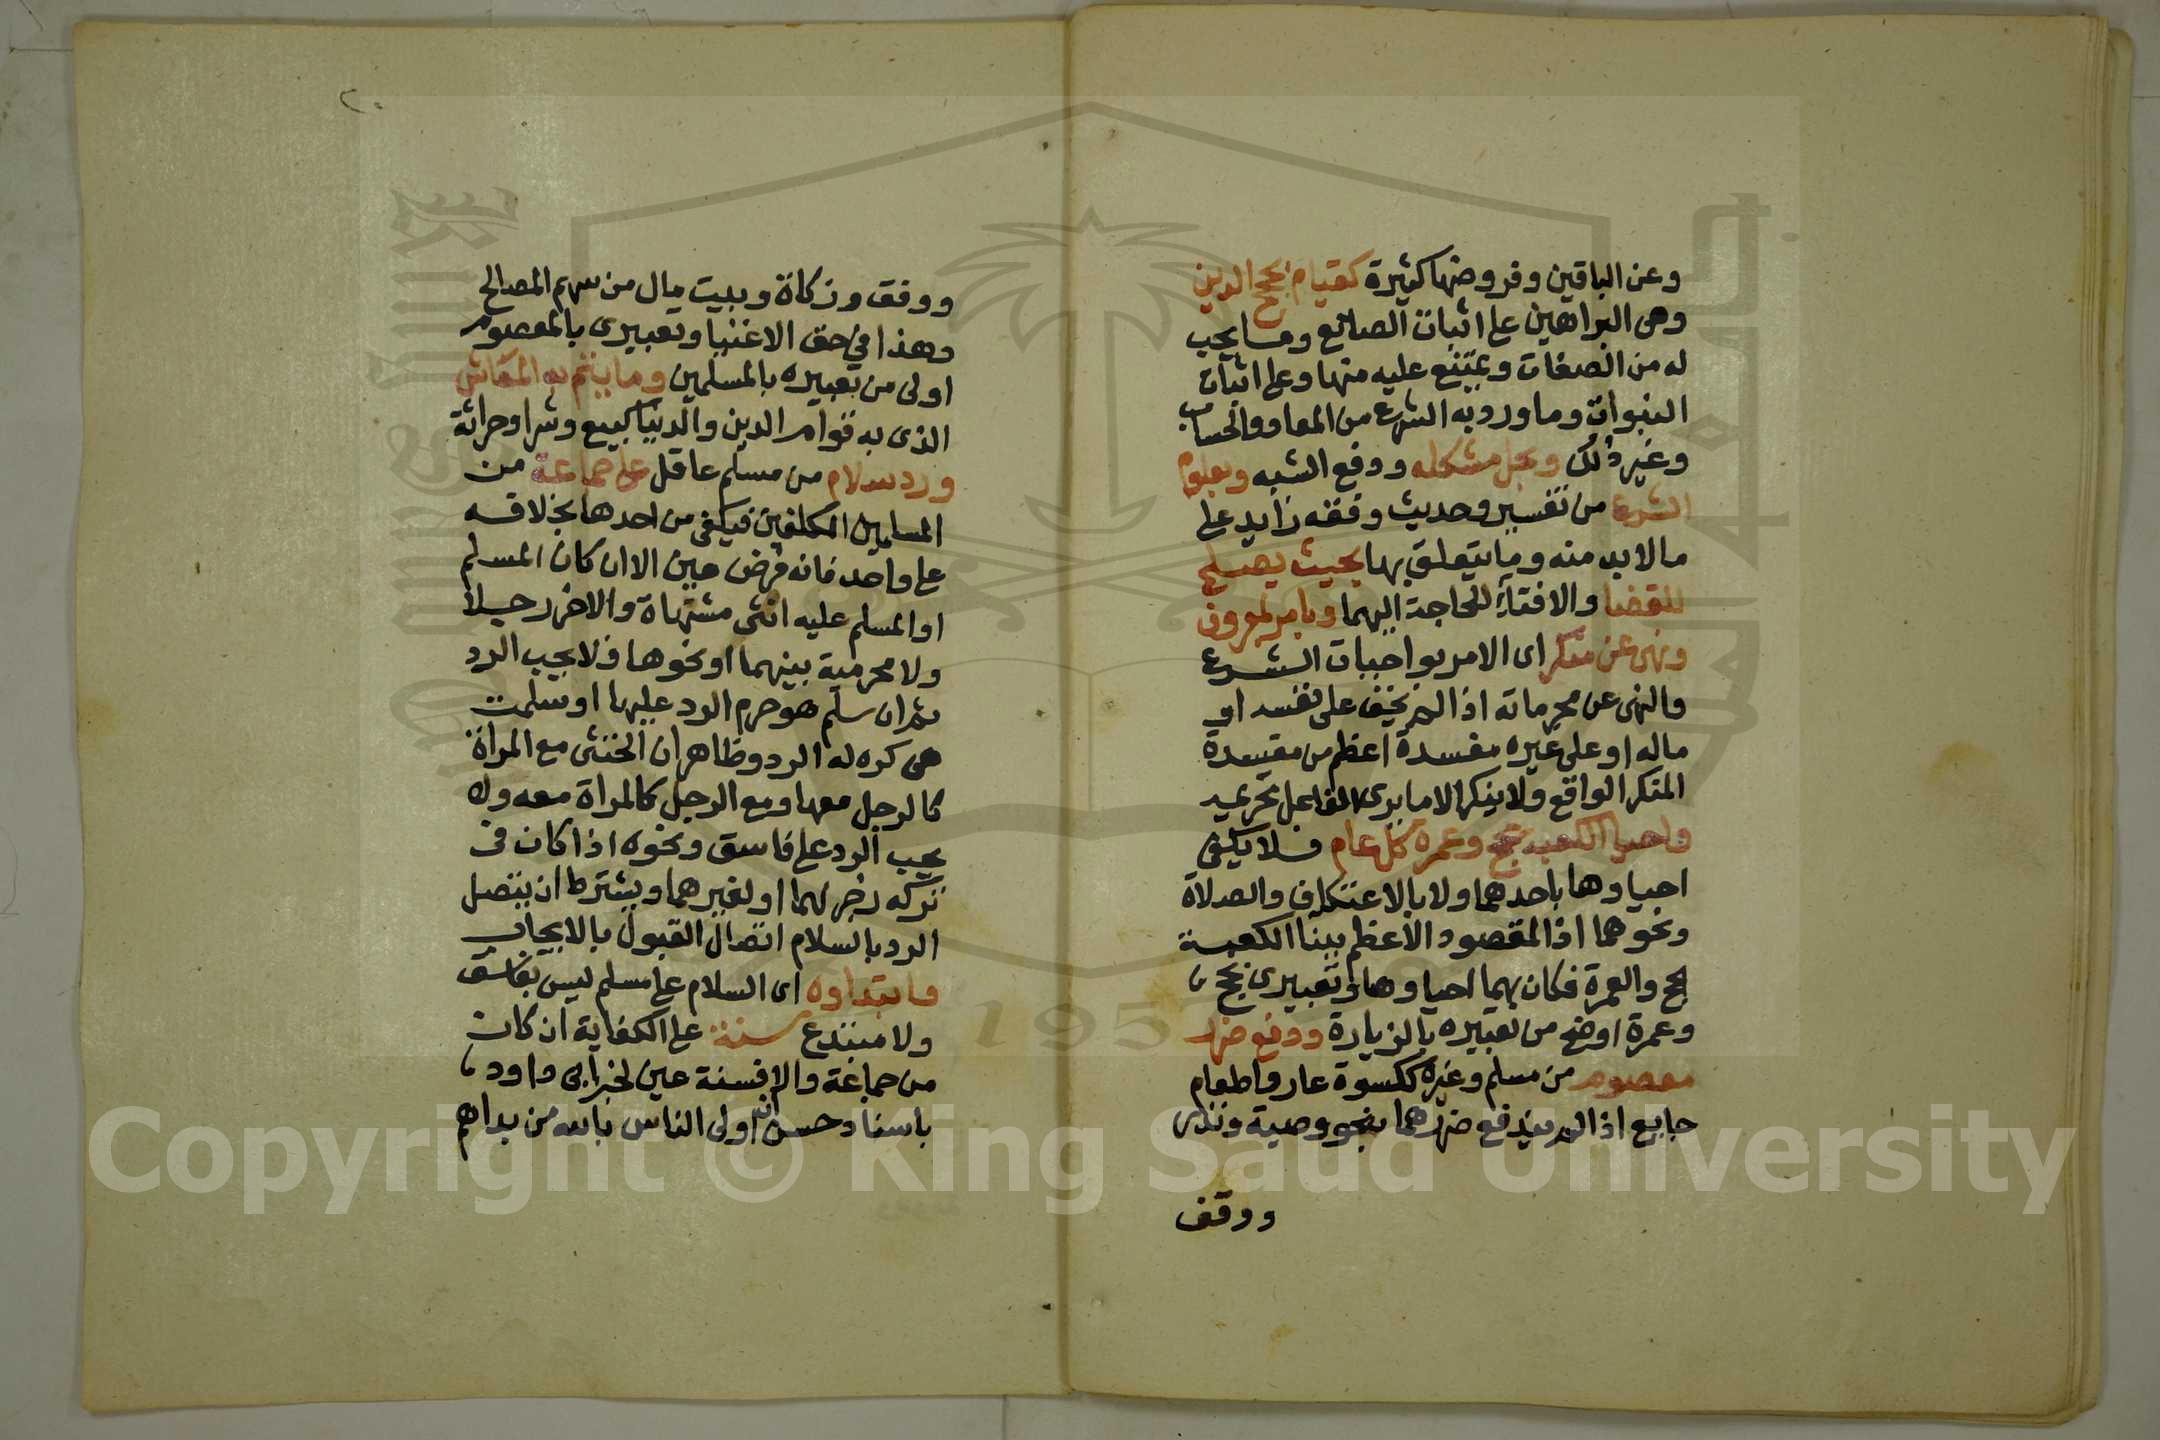 وعن الباقين وفروضها كثيرة كقيام بحجج الدين
وهى البراهين على اثبات الصانع وما يجب
له من الصفات ويمتنع عليه منها وعلى اثبات
النبوات وما ورد به الشرع من المعاد والحساب
وغير ذلك وبحل مشكله ودفع الشبه وبعلوم
الشرع من تفسير وحديث وفقه زايد على
مالابد منه وما يتعلق بها بحيث يصلح
للقضا والافتاء للحاجة اليهما وبامر بمعروف
ونهى عن منكر اى الامر بواجبات الشرع
والنهى عن محرماته اذا لم يخف على نفسه او
ماله او على غيره مفسدة اعظم من مفسدة
المنكر الواقع ولا ينكر الا ما يرى الفاعل تحريمه
واحيا الكعبة بحج وعمرة كل عام فلا يكفى
احياوها باحدهما ولا بالاعتكاف والصلاة
ونحوهما اذ المقصود الاعظم ببنا الكعبة
الحج والعمرة فكان بهما احياوها وتعبيرى بحج
وعمرة اوضح من تعبيره بالزيارة ودفع ضرر
معصوم من مسلم وغيره ككسوة عار واطعام
جايع اذا لم يندفع ضررهما بنحو وصية ونذر
ووقف
٢٠
ووقف وزكاة وبيت مال من سهم المصالح
وهذا فى حق الاغنيا وتعبيرى بالمعصوم
اولى من تعبيره بالمسلمين وما يتم به المعاش
الذى به قوام الدين والدنيا كبيع وشرا وحراثة
ورد سلام من مسلم عاقل على جماعة من
المسلمين المكلفين فيكفى من احدها بخلافه
على واحد فانه فرض عين الا ان كان المسلم
او المسلم عليه انثى مشتهاة والاخر رجلا
ولا محرمية بينهما او نحوها فلا يجب الرد
ثم ان سلم هو حرم الرد عليها او سلمت
هى كره له الرد وظاهر ان الخنثى مع المراة
كالرجل معها ومع الرجل كالمراة معه ولا
يجب الرد على فاسق ونحوه اذا كان فى
تركه زجر لهما او لغيرهما ويشترط ان يتصل
الرد بالسلام اتصال القبول بالايجاب
وابتداوه اى السلام على مسلم ليس بفاسق
ولا مبتدع سنة على الكفاية ان كان
من جماعة والا فسنة عين لخبر ابى داود
باسناد حسن ان اولى الناس بالله من بداهم
Copyright © King Saud University
1957